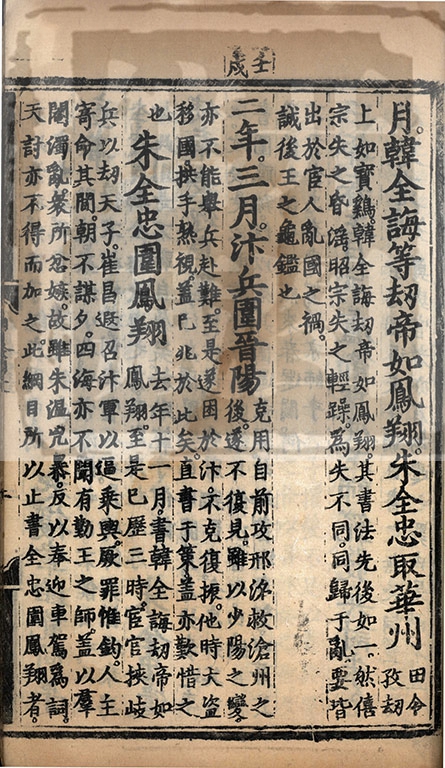 壬戌
月。韓全誨等刼帝如鳳翔。朱全忠取華州
田令
孜刼
上如寶鷄。韓全誨刼帝如鳳翔。其書法先後如一。然僖
宗失之昏淫。昭宗失之輕躁。為失不同。同歸于亂。要皆
出於宦人亂國之禍。
誠後王之龜鑑也
二年。三月。汴兵圍晉陽
克用自前攻邢洺救滄州之
後。遂不復見。雖以少陽之變。
亦不能舉兵赴難。至是遂困於汴。不克復振。他時大盗
移國。拱手熟視。蓋已兆於此矣。直書于策。蓋亦歎惜之
也
朱全忠圍鳳翔
去年十一月。書韓全誨刼帝如
鳳翔。至是已歷三時。宦官挾岐
兵以刼天子。崔昌遐召汴軍以逼乘輿。厥罪惟鈞。人主
寄命其間。朝不謀夕。四海亦不聞有勤王之師。蓋以羣
閹濁亂。衆所忿嫉。故雖朱温兇暴。反以奉迎車駕為詞。
天討亦不得而加之。此綱目所以止書全忠圍鳳翔者。